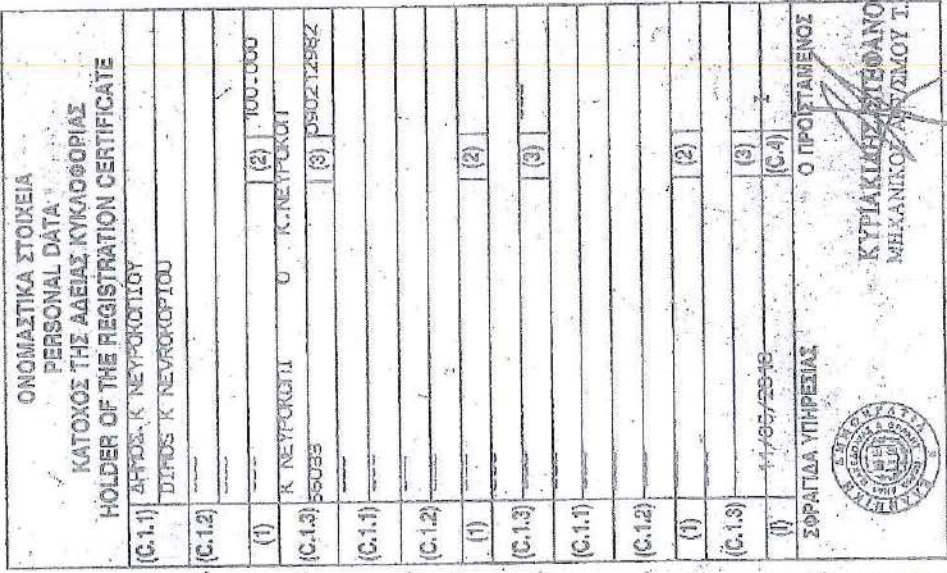 ΟΝΟΜΑΣΤΙΚΑ ΣΤΟΙΧΕΙΑ
PERSONAL DATA
ΚΑΤΟΧΟΣ ΤΗΣ ΑΔΕΙΑΣ ΚΥΚΛΟΦΟΡΙΑΣ
HOLDER OF THE REGISTRATION CERTIFICATE
(C.1.1) ΔΗΜΟΣ Κ ΝΕΥΡΟΚΟΠΙΟΥ
DIMOS K NEVROKOPIOU
(C.1.2)
(1) (2) 100.000
(C.1.3) Κ ΝΕΥΡΟΚΟΠΙ 0 Κ.ΝΕΥΡΟΚΟΠΙ
66033 (3) 090212982
(C.1.1)
(C.1.2)
(1) (2)
(C.1.3) (3)
(C.1.1)
(C.1.2)
(1) (2)
(C.1.3) (3)
(I) (C.4)
ΣΦΡΑΓΙΔΑ ΥΠΗΡΕΣΙΑΣ Ο ΠΡΟΪΣΤΑΜΕΝΟΣ
ΚΥΡΙΑΚΙΔΗΣ ΣΤΕΦΑΝΟ
ΜΗΧΑΝΙΚΟΣ Τ.
ΕΛΛΗΝΙΚΗ ΔΗΜΟΚΡΑΤΙΑ